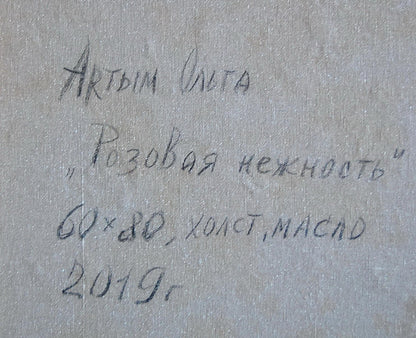 Артым Ольга
„Розовая нежность"
60×80, холст, масло
2019г